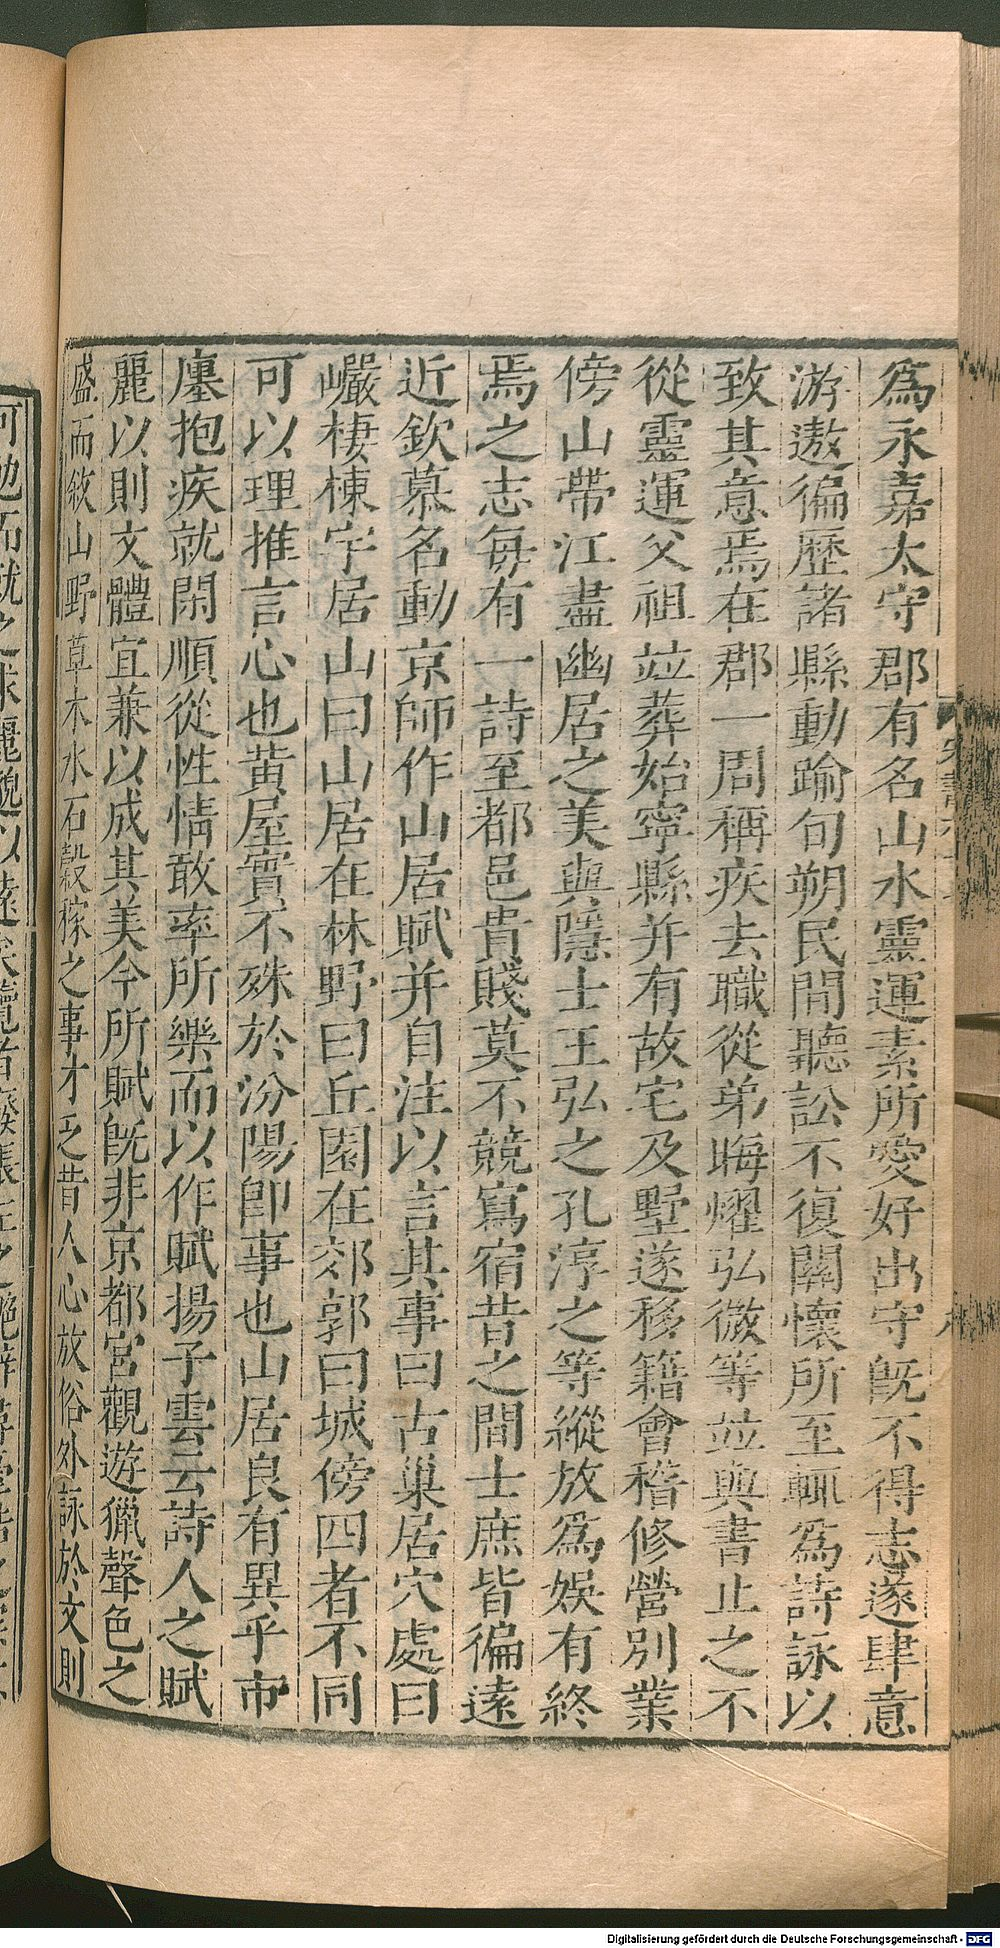 為永嘉太守郡有名山水靈運素所愛好出守旣不得志遂肆意
游遨徧歷諸縣動踰旬朔民間聽訟不復關懷所至輒為詩詠以
致其意焉在郡一周稱疾去職從弟晦耀弘微等竝與書止之不
從靈運父祖竝葬始寧縣并有故宅及墅遂移籍會稽修營別業
傍山帶江盡幽居之美與隱士王弘之孔淳之等縱放為娛有終
焉之志每有一詩至都邑貴賤莫不競寫宿昔之間士庶皆徧遠
近欽慕名動京師作山居賦并自注以言其事曰古巢居穴處曰
巖棲棟宇居山曰山居在林野曰丘園在郊郭曰城傍四者不同
可以理推言心也黃屋實不殊於汾陽卽事也山居良有異乎市
廛抱疾就閑順從性情敢率所樂而以作賦揚子雲云詩人之賦
麗以則文體宜兼以成其美今所賦旣非京都宮觀遊獵聲色之
盛而敘山野草木水石穀稼之事才乏昔人心放俗外詠於文則
可勉而就之求麗邈以遠矣覽者
Digitalisierung gefördert durch die Deutsche Forschungsgemeinschaft - DFG